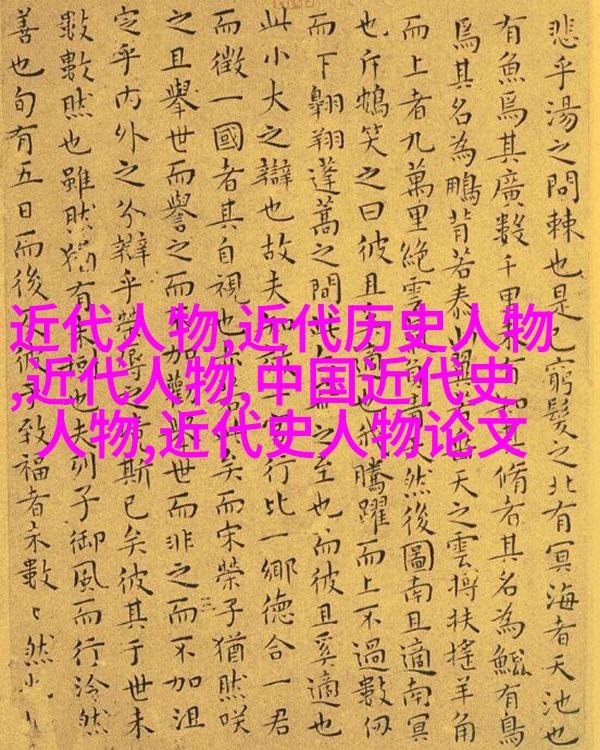 近代人物,近代历史人物
,近代人物,中国近代史
人物,近代史人物论文
悲乎湯之問棘也是已窮髮之北有冥海者天池也
有魚焉其廣數千里未有知其脩者其名為鯤有鳥
焉其名為鵬背若泰山翼若垂天之雲摶扶搖羊角
而上者九萬里絕雲然後圖南且適南冥
也斥鴳笑之曰彼且奚適也我騰躍而上不過數仞
而下翱翔蓬蒿之間此之至也而彼且奚適也
此小大之辯也故夫行比一鄉德合一君
而徵一國者其自視也亦矣而宋榮子猶然咲
之且舉世而譽之而不加勸舉世而非之而不加沮
定乎內外之分辯乎榮辱之境斯已矣彼其于世未
數數然也雖然猶有也夫列子御風而行泠然
善也旬有五日而後彼于致福者未數〻然也